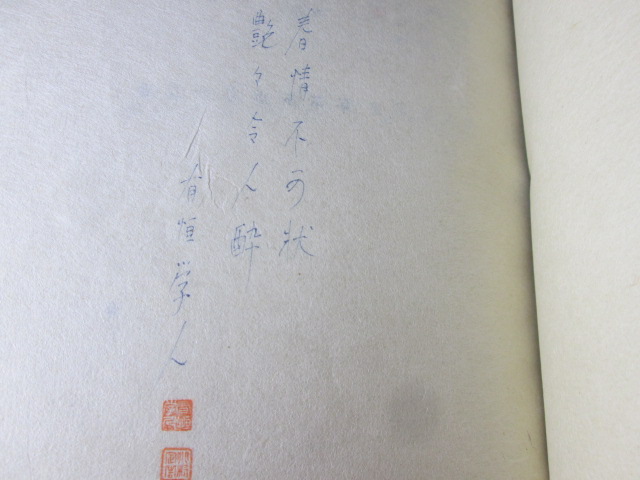 春情不可状
艶々令人酔
有恒学人